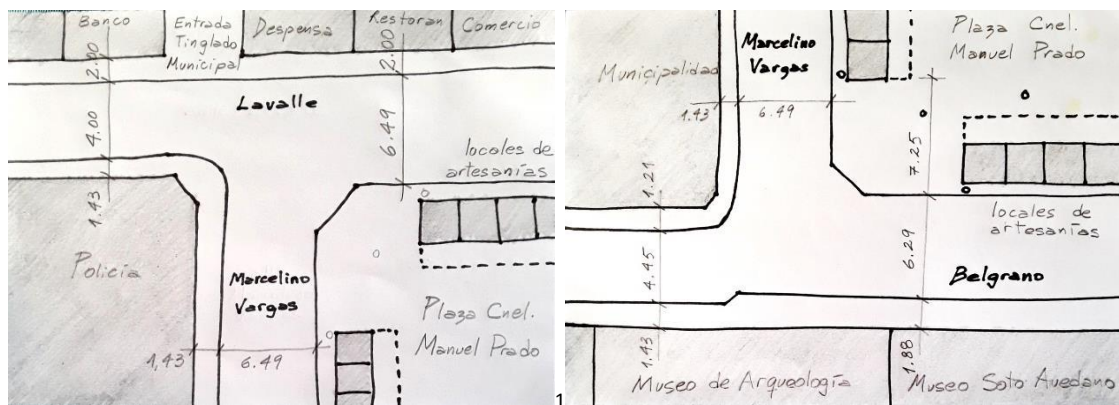 Banco
Entrada
Tinglado
Municipal
Despensa
Restoran
Comercio
2.00
2.00
Lavalle
4.00
6.49
1.43
locales de
artesanías
Policía
Marcelino
Vargas
Plaza Cnel.
Manuel Prado
1,43
6.49
1
Municipalidad
Marcelino
Vargas
Plaza Cnel.
Manuel Prado
1.43
6.49
7.25
1.21
locales de
artesanías
4.45
6.29
Belgrano
1.43
1.88
Museo de Arqueología
Museo Soto Avedano